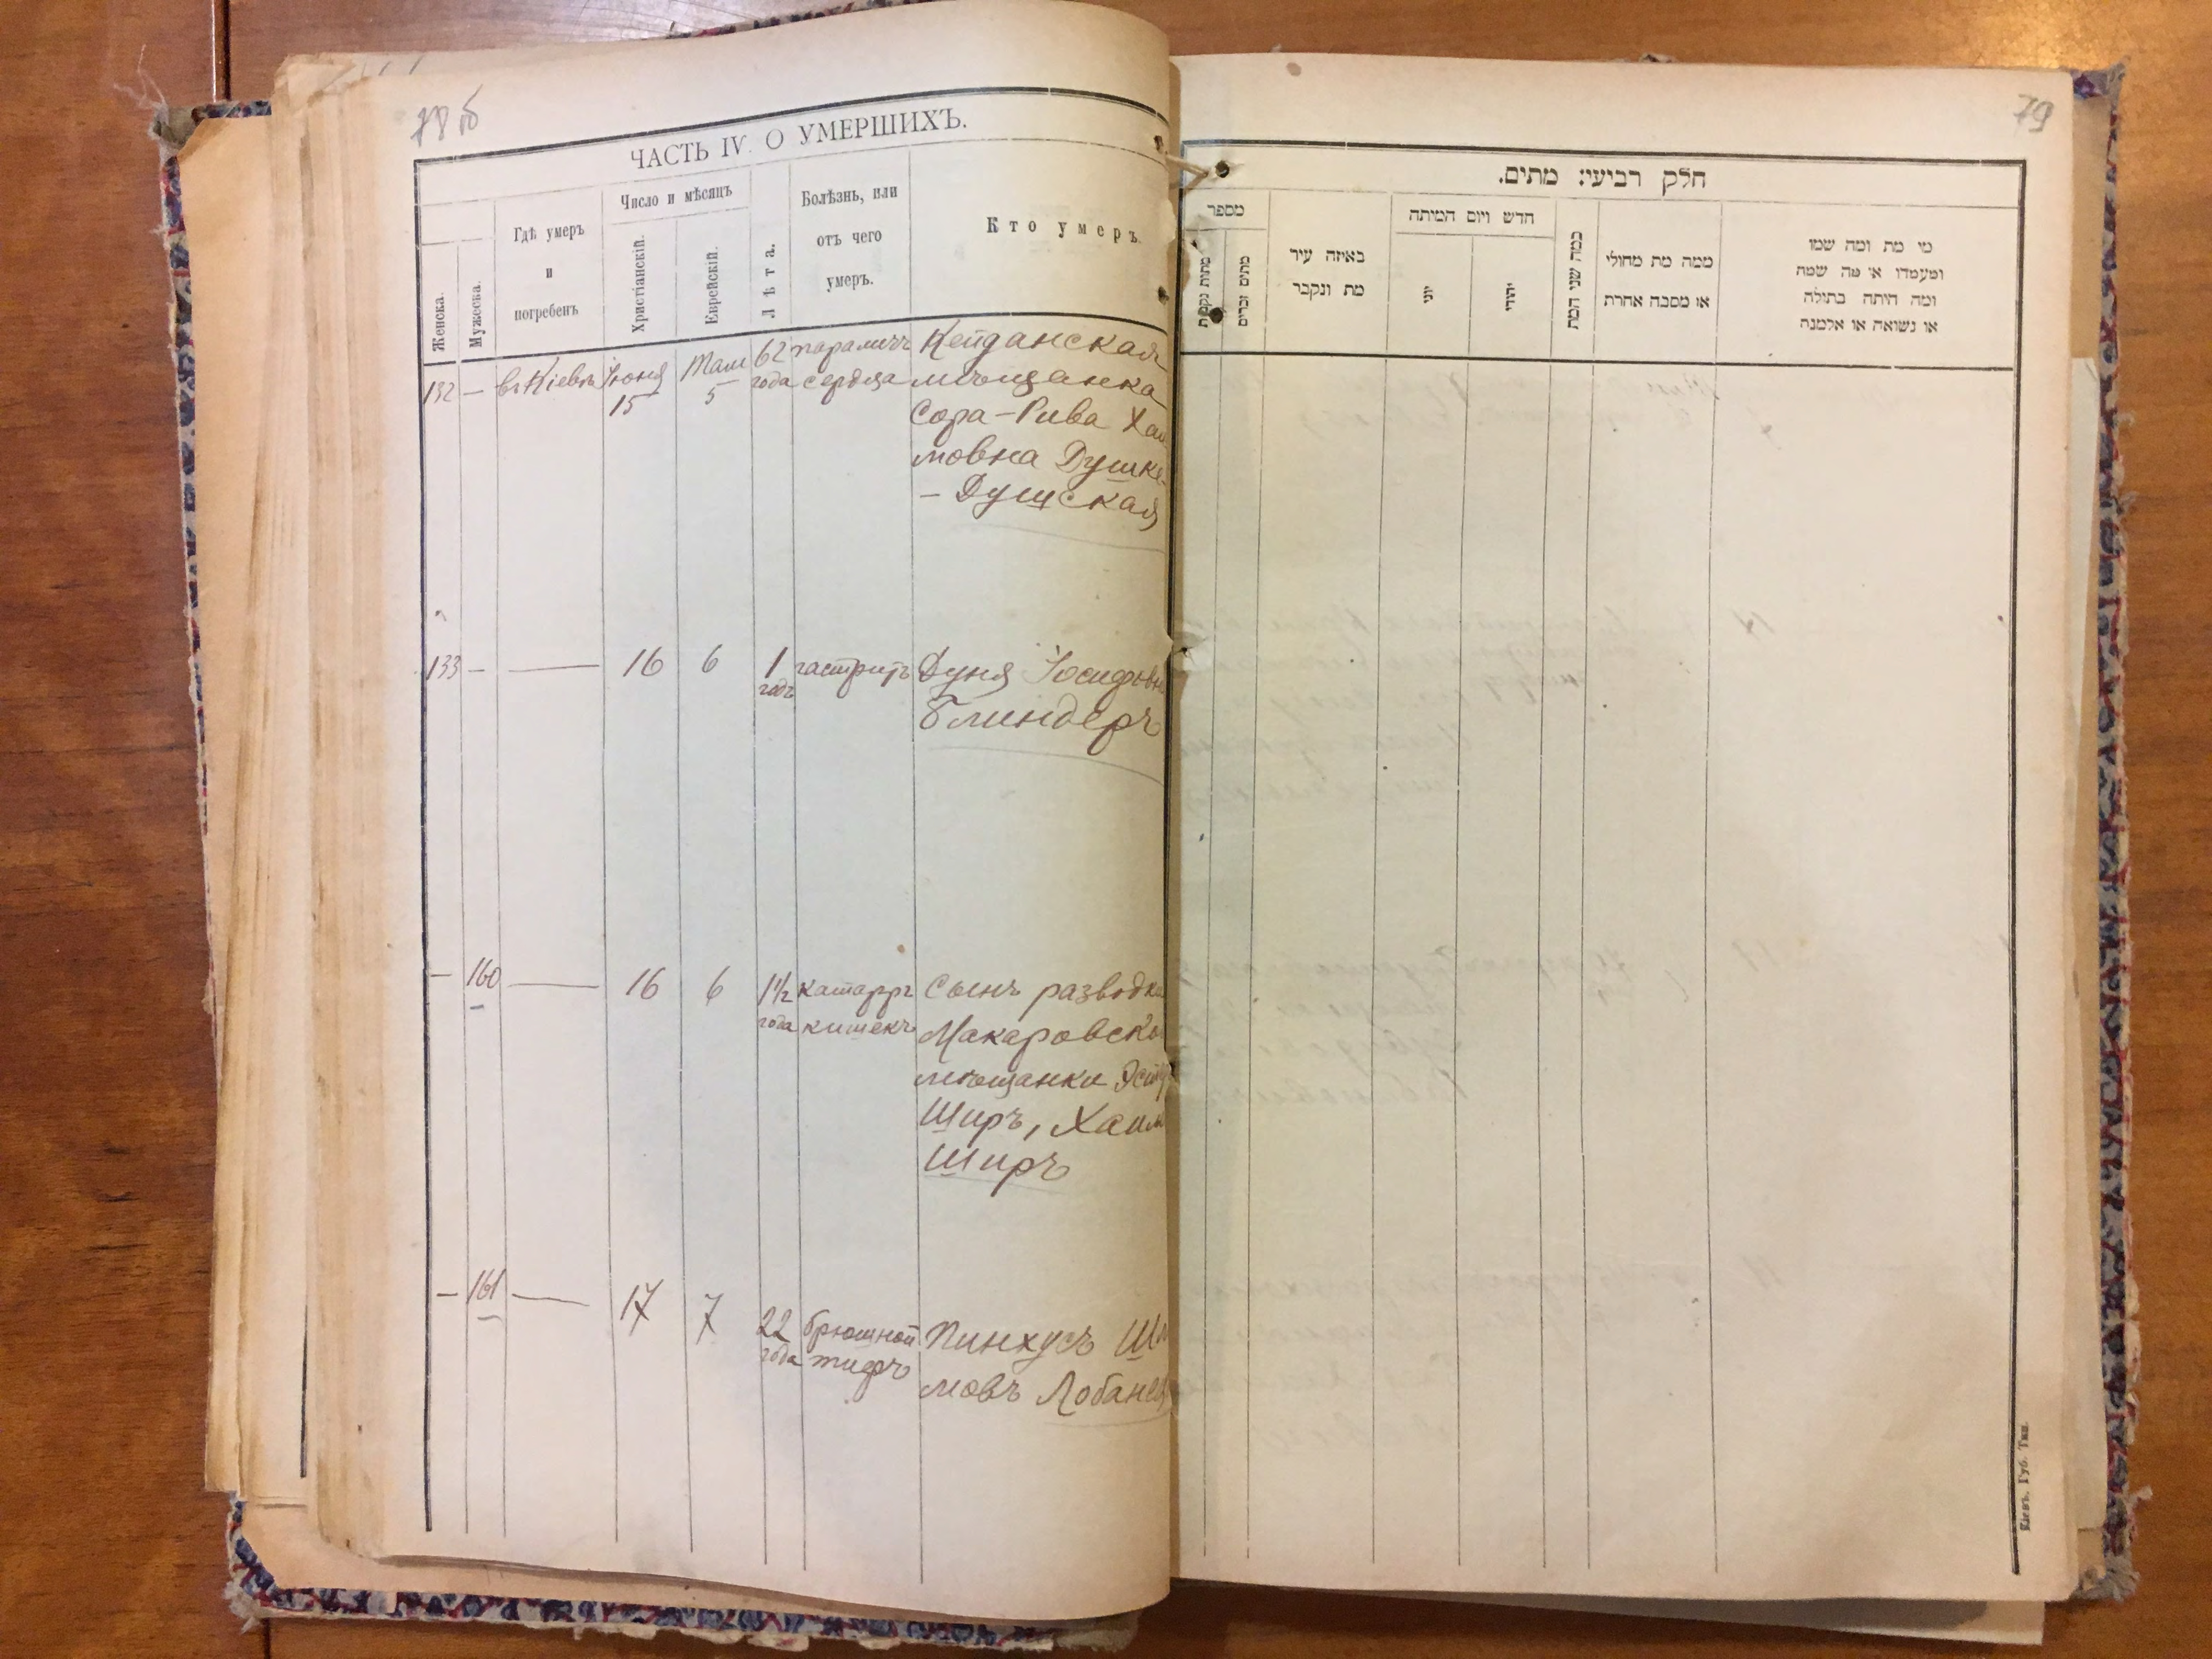 78 б
ЧАСТЬ IV. О УМЕРШИХЪ.
Женска.
Мужеска.
Гдѣ умеръ
и
погребенъ
Число и мѣсяцъ
Христіанскій.
Еврейскій.
Лѣта.
Болѣзнь, или
отъ чего
умеръ.
Кто умеръ.
132 — въ Кіевѣ Іюня 15 Там 5 62 года параличъ сердца
Кейданская
мѣщанка
Сора-Рива Хаи
мовна Душке-
- Душская
133 — — 16 6 1 годъ гастритъ
Дуня Іосифовна
Блиндеръ
— 160 — 16 6 1½ года катарръ кишекъ
Сынъ разводки
Макаровской
мѣщанки
Ширъ, Хаим
Ширъ
— 161 — 17 7 22 года брюшной тифъ
Пинхусъ
мовъ
79
חלק רביעי: מתים.
מספר
מתות נקבות
מתים זכרים
באיזה עיר
מת ונקבר
חדש ויום המיתה
יוני
יהודי
כמה שני המת
ממה מת מחולי
או מסבה אחרת
מי מת ומה שמו
ומעמדו או מה שמה
ומה היתה בתולה
או נשואה או אלמנה
Кіевъ. Губ. Тип.